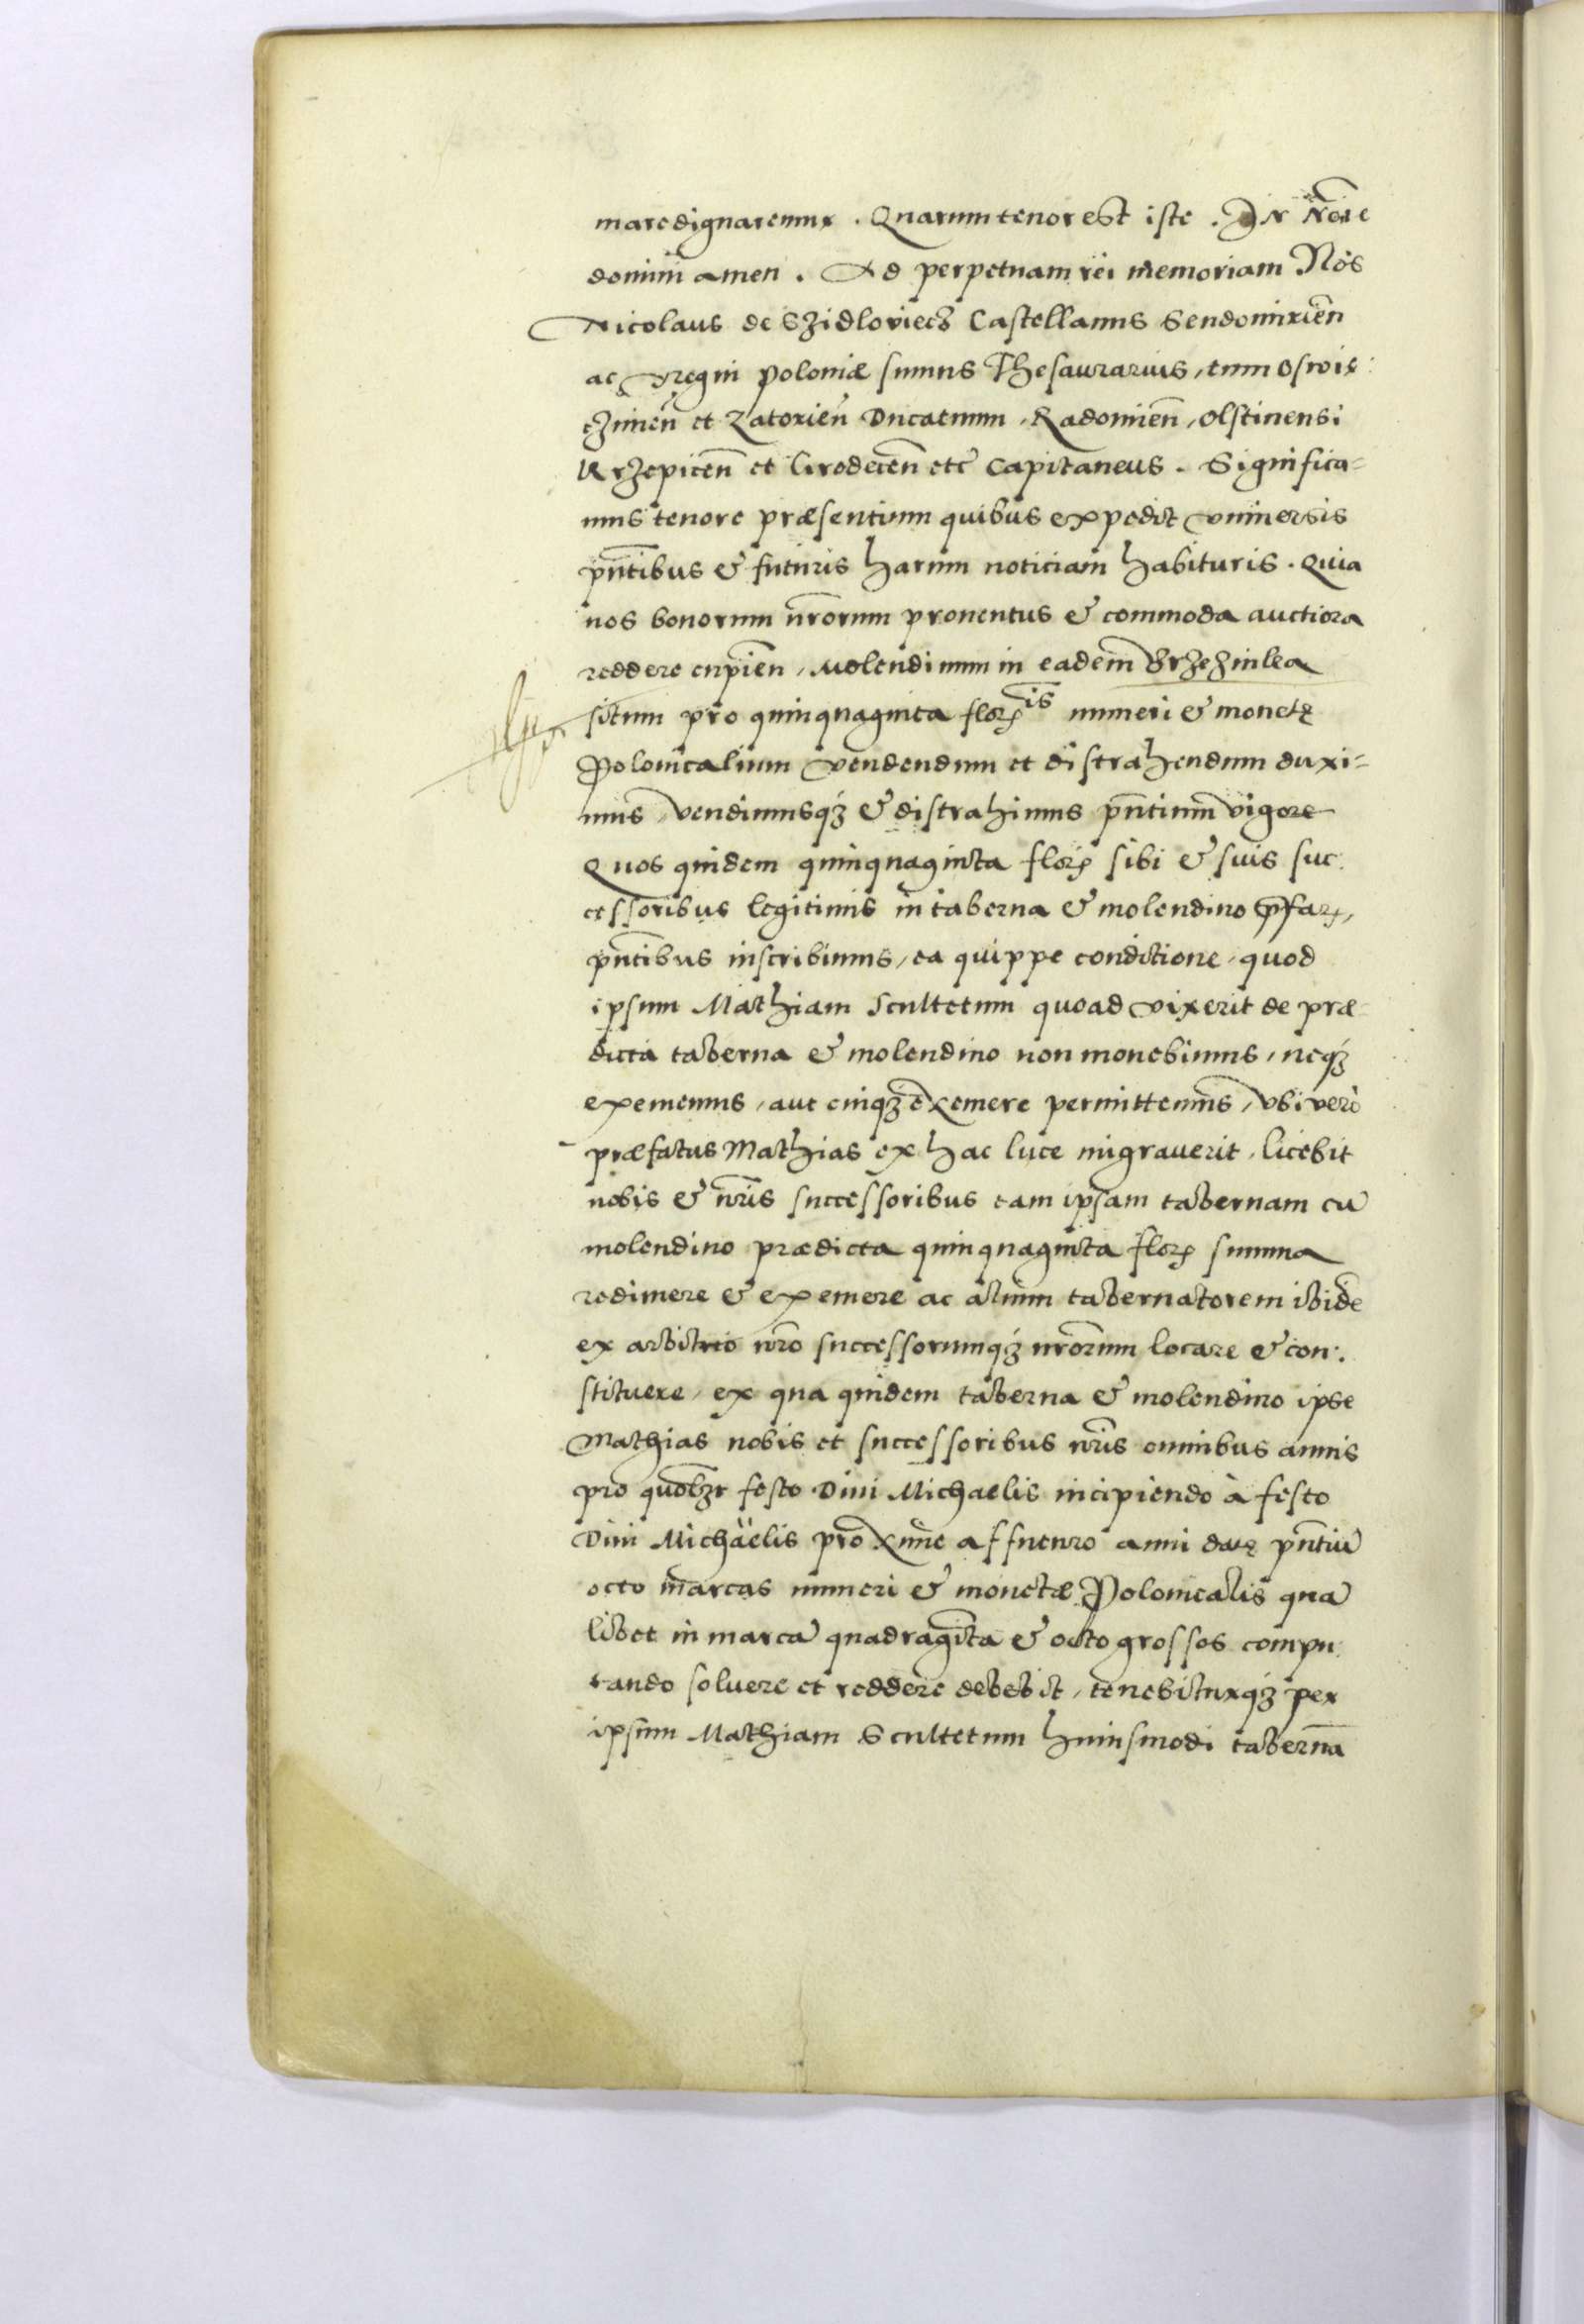 maredignaremur . Quarum tenor est iste . IN Nõie
domini amen . Ad perpetuam rei memoriam Nos
Nicolaus de Szidloviecz Castellanus Sendomiriẽn
ac Regni Poloniæ sumus Thesaurarius, tum Oswie:
czimẽn et Zatoriẽn Ducatuum, Radomiẽn, Olstinensi
Krzepicẽn et Grodecẽn etc̃ Capitaneus . Significa-
mus tenore præsentium quibus expedit vniuersis
pñtibus & futuris harum noticiam habituris . Quia
nos bonorum ñrorum prouentus & commoda auctiora
reddere cupiẽn, Molendinum in eadem Brzezinka
situm pro quinquaginta florꝭis numeri & monetę
Polonicalium vendendum et distrahendum duxi-
mus, vendimusqꝫ & distrahimus pñtium vigore
Quos quidem quinquaginta florꝭ sibi & suis suc:
cessoribus legitimis in taberna & molendino p̃farꝭ,
pñtibus inscribimus, ea quippe conditione, quod
ipsum Mathiam Scultetum quoad vixerit de præ
dicta taberna & molendino non mouebimus, neqꝫ
exememus, aut cuiqꝫ exemere permittemus, vbi vero
præfatus Mathias ex hac luce migrauerit, licebit
nobis & ñris successoribus eam ipsam tabernam cũ
molendino prædicta quinquaginta florꝭ summa
redimere & exemere ac alium tabernatorem ibidẽ
ex arbitrio ñro successorumqꝫ ñrorum locare & con:
stituere, ex qua quidem taberna & molendino ipse
Mathias nobis et successoribus ñris omnibus annis
pro quolꝫt festo Diui Michaelis incipiendo à festo
Diui Michäelis proxime affuturo anni datę pñtiũ
octo marcas numeri & monetæ Polonicalis quã
libet in marcã quadraginta & octo grossos compu:
tando soluere et reddere debebit, tenebiturqꝫ per
ipsum Mathiam Scultetum huiusmodi taberna